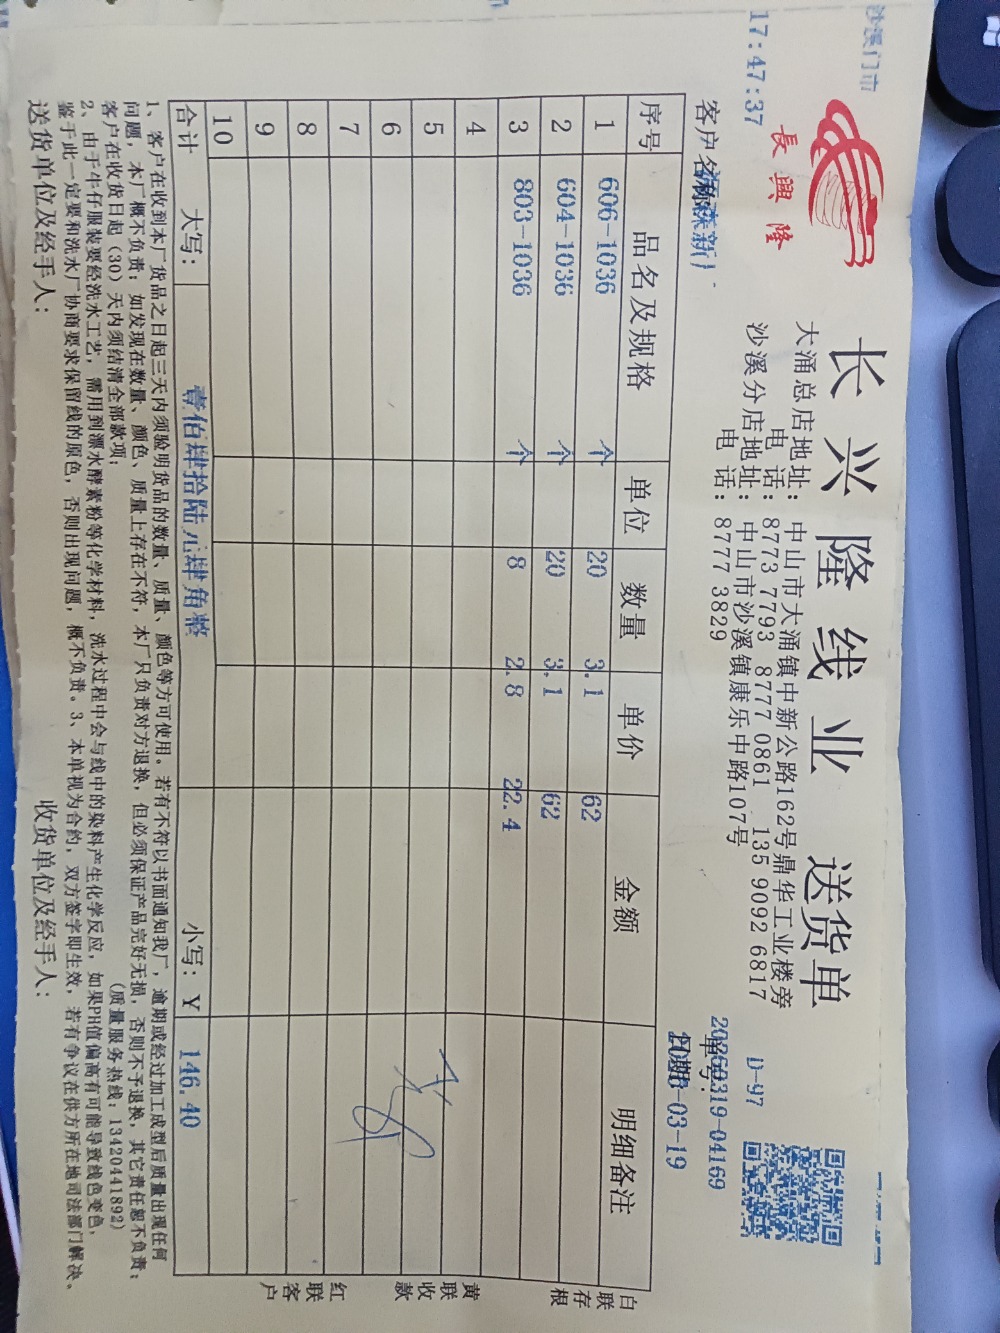 沙溪门市
17:47:37
長興隆
长兴隆线业 送货单
大涌总店地址：中山市大涌镇中新公路162号鼎华工业楼旁
电话：8773 7793 8777 0861 135 9092 6817
沙溪分店地址：中山市沙溪镇康乐中路107号
电话：8777 3829
D-97
单号：
0319-04169
客户名称
森新
日期
-03-19
序号 品名及规格 单位 数量 单价 金额 明细备注
1 606-1036 个 20 3.1 62
2 604-1036 个 20 3.1 62
3 803-1036 个 8 2.8 22.4
4
5
6
7
8
9
10
合计 大写： 壹佰肆拾陆元肆角整 小写：Y 146.40
白联存根
黄联收款
红联客户
1、客户在收到本厂货品之日起三天内须验明货品的数量、质量、颜色等方可使用。若有不符以书面通知我厂，逾期或经过加工成型后质量出现任何
问题，本厂概不负责；如发现在数量、颜色、质量上存在不符，本厂只负责对方退换，但必须保证产品完好无损，否则不予退换，其它责任恕不负责；
客户在收货日起（30）天内须结清全部款项； （质量服务热线：13420441892）
2、由于牛仔服装要经洗水工艺，需用到漂水酵素粉等化学材料，洗水过程中会与线中的染料产生化学反应，如果PH值偏高有可能导致线色变色，
鉴于此一定要和洗水厂协商要求保留线的原色，否则出现问题，概不负责。3、本单视为合约，双方签字即生效，若有争议在供方所在地司法部门解决。
送货单位及经手人： 收货单位及经手人：